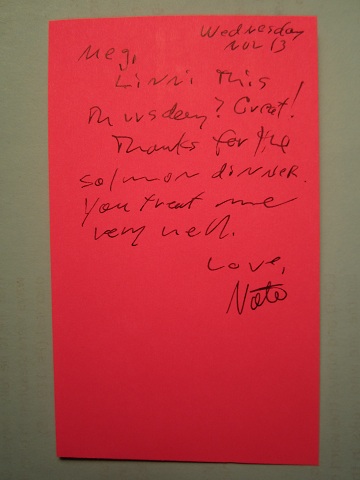 Wednesday
Nov 13
Meg,
Linni this
Thursday? Great!
Thanks for the
salmon dinner.
You treat me
very well.
Love,
Nate